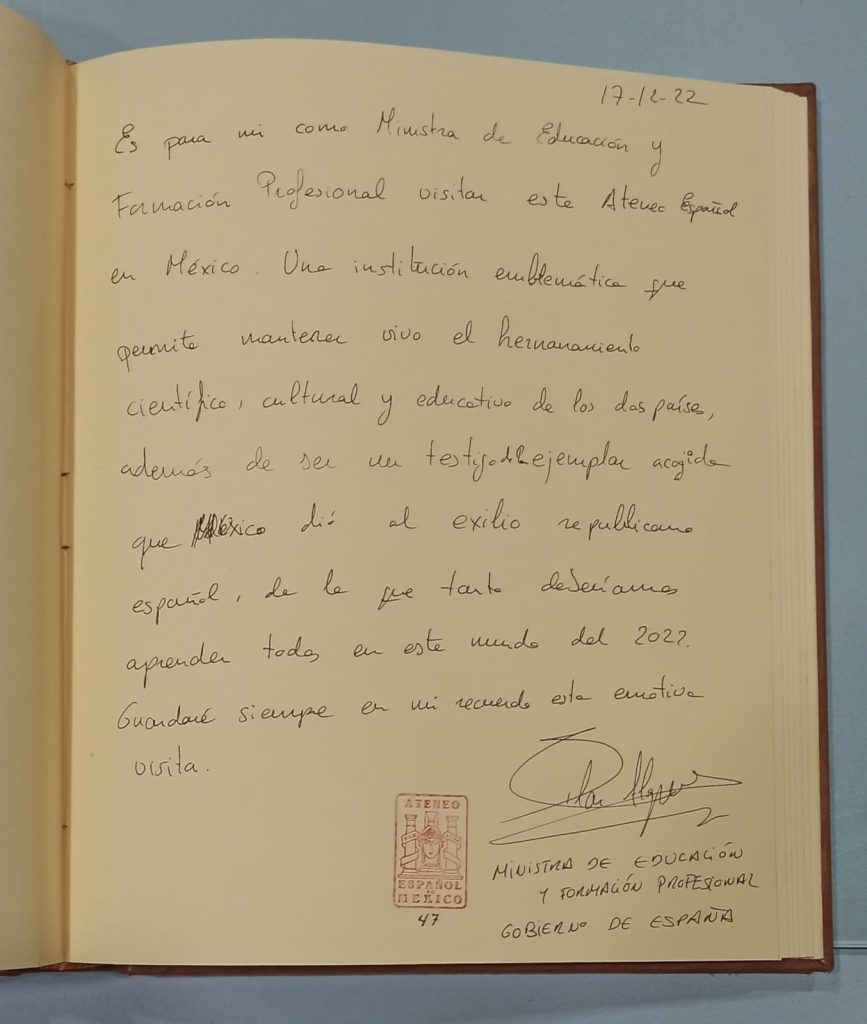 17-12-22
Es para mi como Ministra de Educación y
Formación Profesional visitar este Ateneo Español
en México. Una institución emblemática que
permite mantener vivo el hermanamiento
científico, cultural y educativo de los dos países,
además de ser un testigo de la ejemplar acogida
que México dió al exilio republicano
español, de la que tanto deberíamos
aprender todos en este mundo del 2022.
Guardaré siempre en mi recuerdo esta emotiva
visita.
Pilar Alegría
MINISTRA DE EDUCACIÓN
Y FORMACIÓN PROFESIONAL
GOBIERNO DE ESPAÑA
ATENEO
ESPAÑOL
DE
MEXICO
47